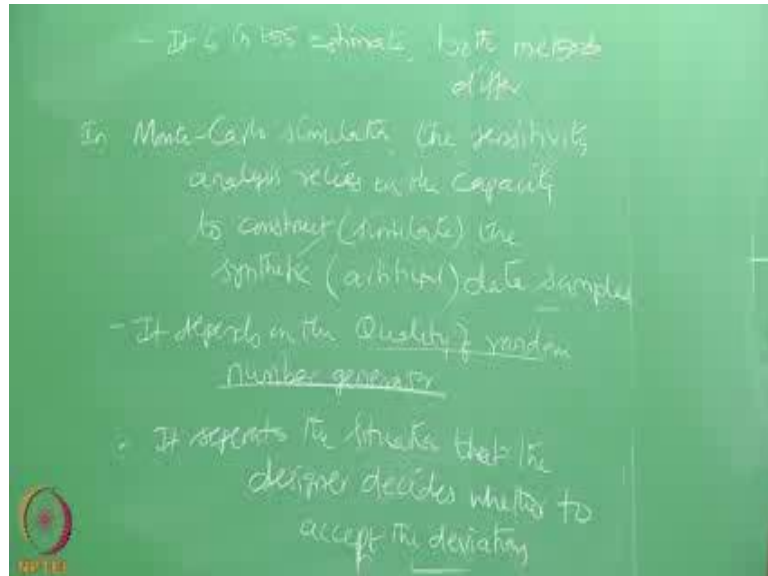 - It is in this estimate, both methods
differ
In Monte-Carlo simulation the sensitivity
analysis relies on the capacity
to construct (simulate) the
synthetic (artificial) data samples
- It depends on the Quality of random
number generator
- It the situation that the
designer decides whether to
accept the deviation
NPTEL